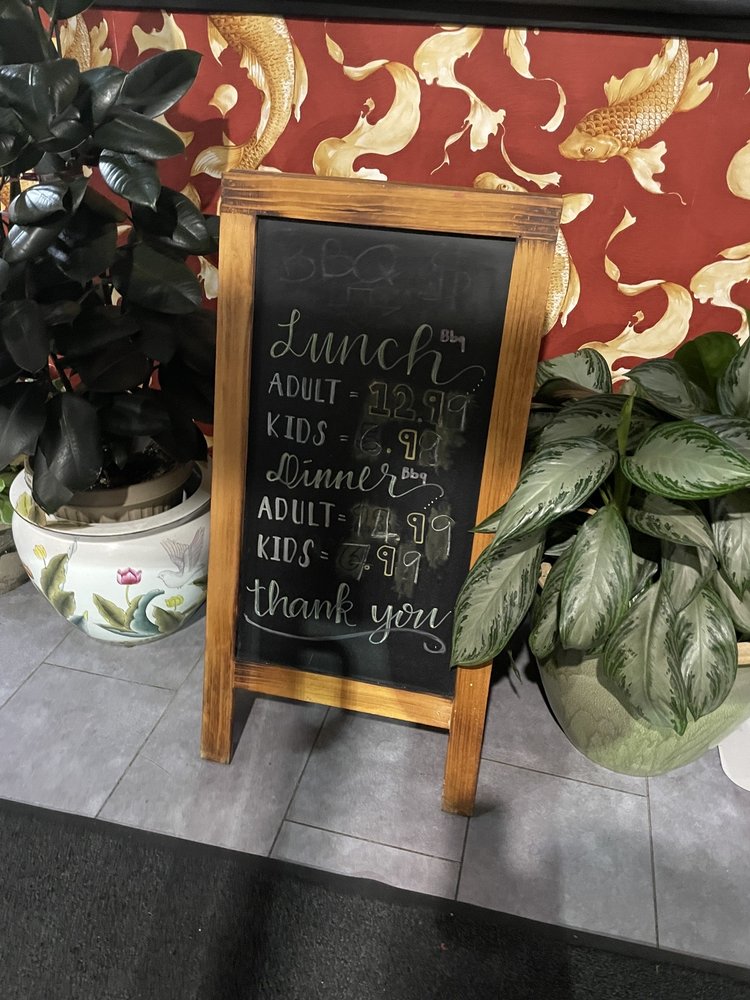 Lunch Bbq
ADULT = 12.99
KIDS = 6.99
Dinner Bbq
ADULT = 14.99
KIDS =
thank you